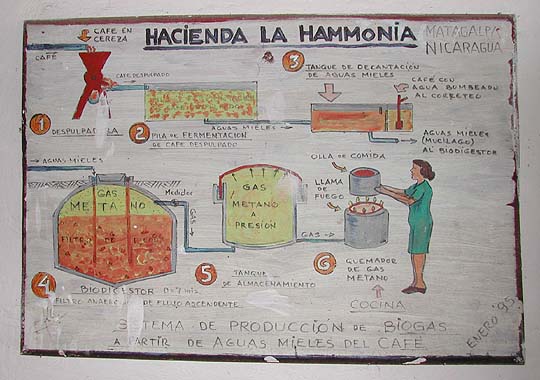 CAFE EN
CEREZA
HACIENDA LA HAMMONIA
MATAGALPA
NICARAGUA
CAFÉ
CAFE DESPULPADO
1
DESPULPADORA
2
PILA DE FERMENTACION
DE CAFE DESPULPADO
AGUAS MIELES
3
TANQUE DE DECANTACIÓN
DE AGUAS MIELES
CAFÉ CON
AGUA BOMBEADO
AL CORRETEO
AGUAS MIELES
(MUCILAGO) AL
BIODIGESTOR
AGUAS MIELES
GAS
METANO
FILTRO DE
Medidor
GAS
4
BIODIGESTOR
FILTRO DE FLUJO ASCENDENTE
GAS
METANO
A
PRESIÓN
5
TANQUE
DE ALMACENAMIENTO
GAS
OLLA DE COMIDA
LLAMA
DE
FUEGO
6
QUEMADOR
DE GAS
METANO
COCINA
SISTEMA DE PRODUCCIÓN DE BIOGAS
A PARTIR DE AGUAS MIELES DEL CAFÉ
ENERO '95